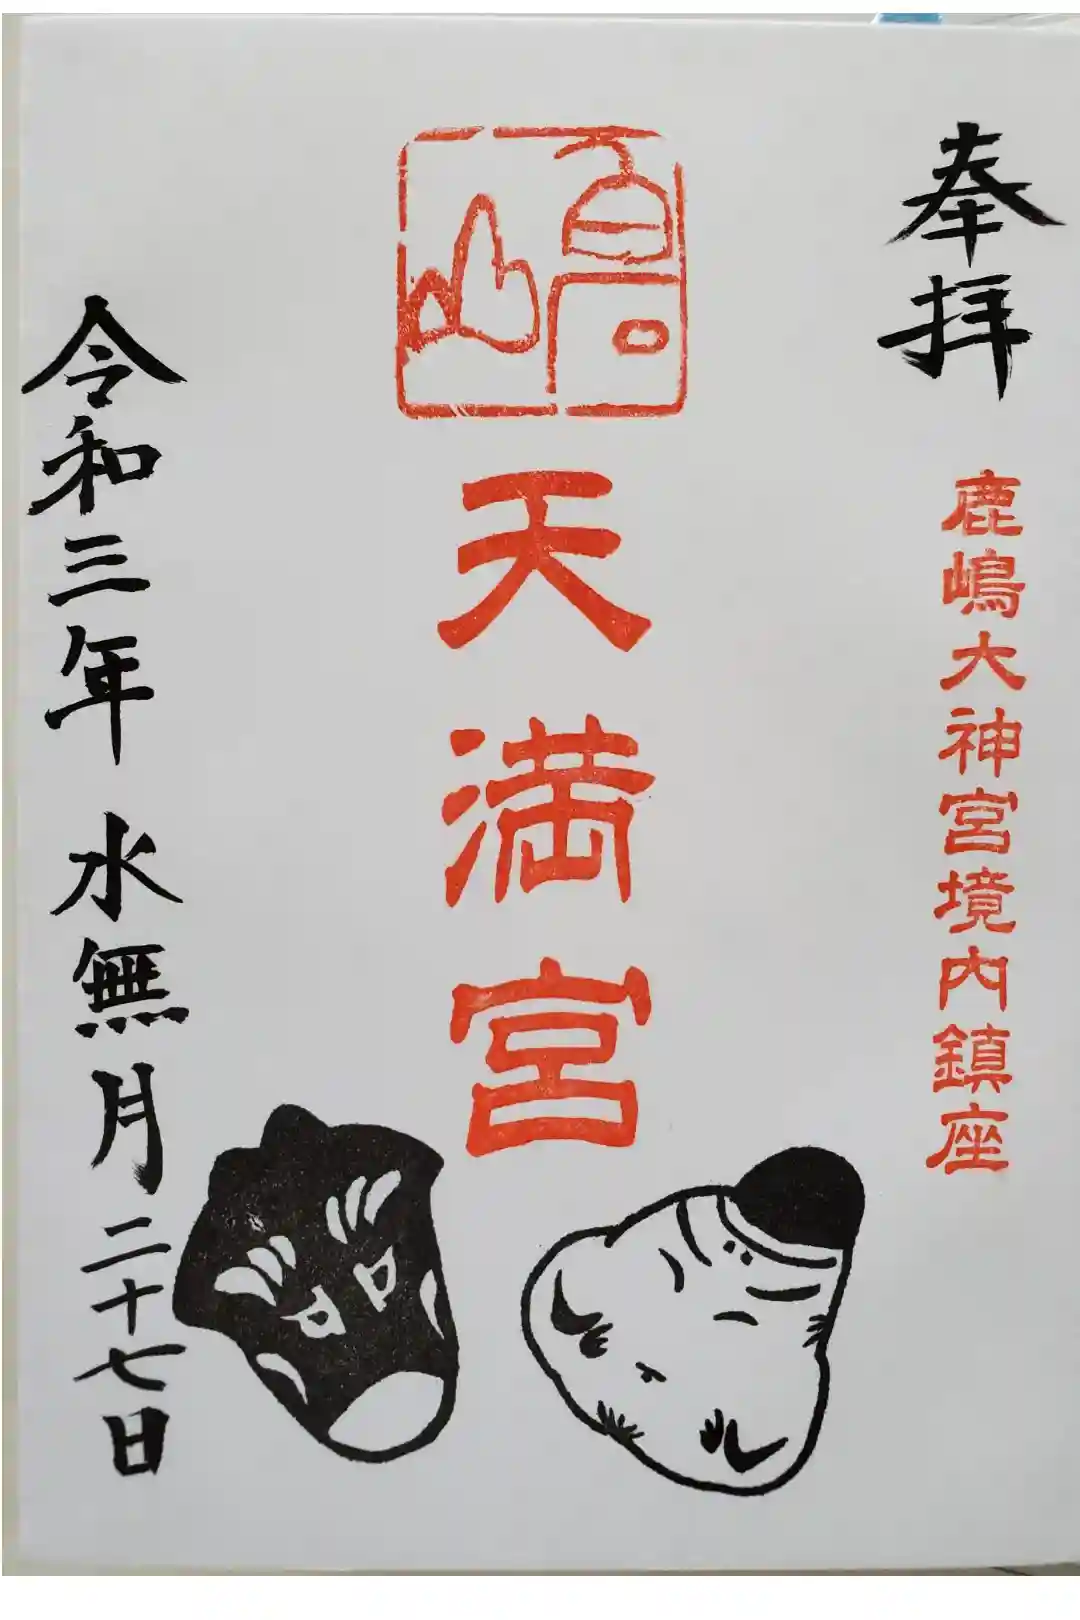 奉拝
鹿嶋大神宮境内鎮座
嶋
天満宮
令和三年 水無月 二十七日